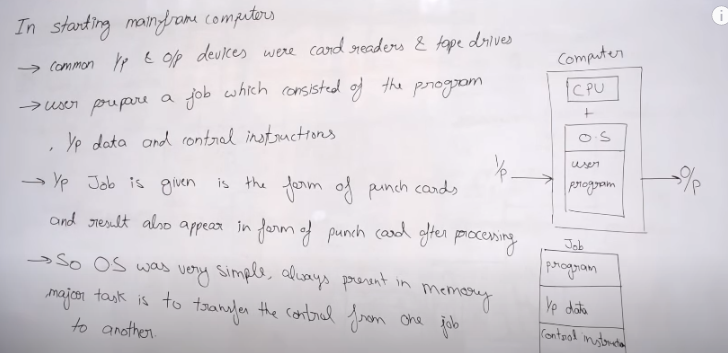 In starting mainframe computers
→ common I/p & O/p devices were card readers & tape drives
→ user prepare a job which consisted of the program
, I/p data and control instructions
→ I/p Job is given is the form of punch cards
and result also appear in form of punch card after processing
→ So OS was very simple, always present in memory
major task is to transfer the control from one job
to another.
Computer
CPU
+
O.S
user
program
I/p
O/p
Job
program
I/p data
Control